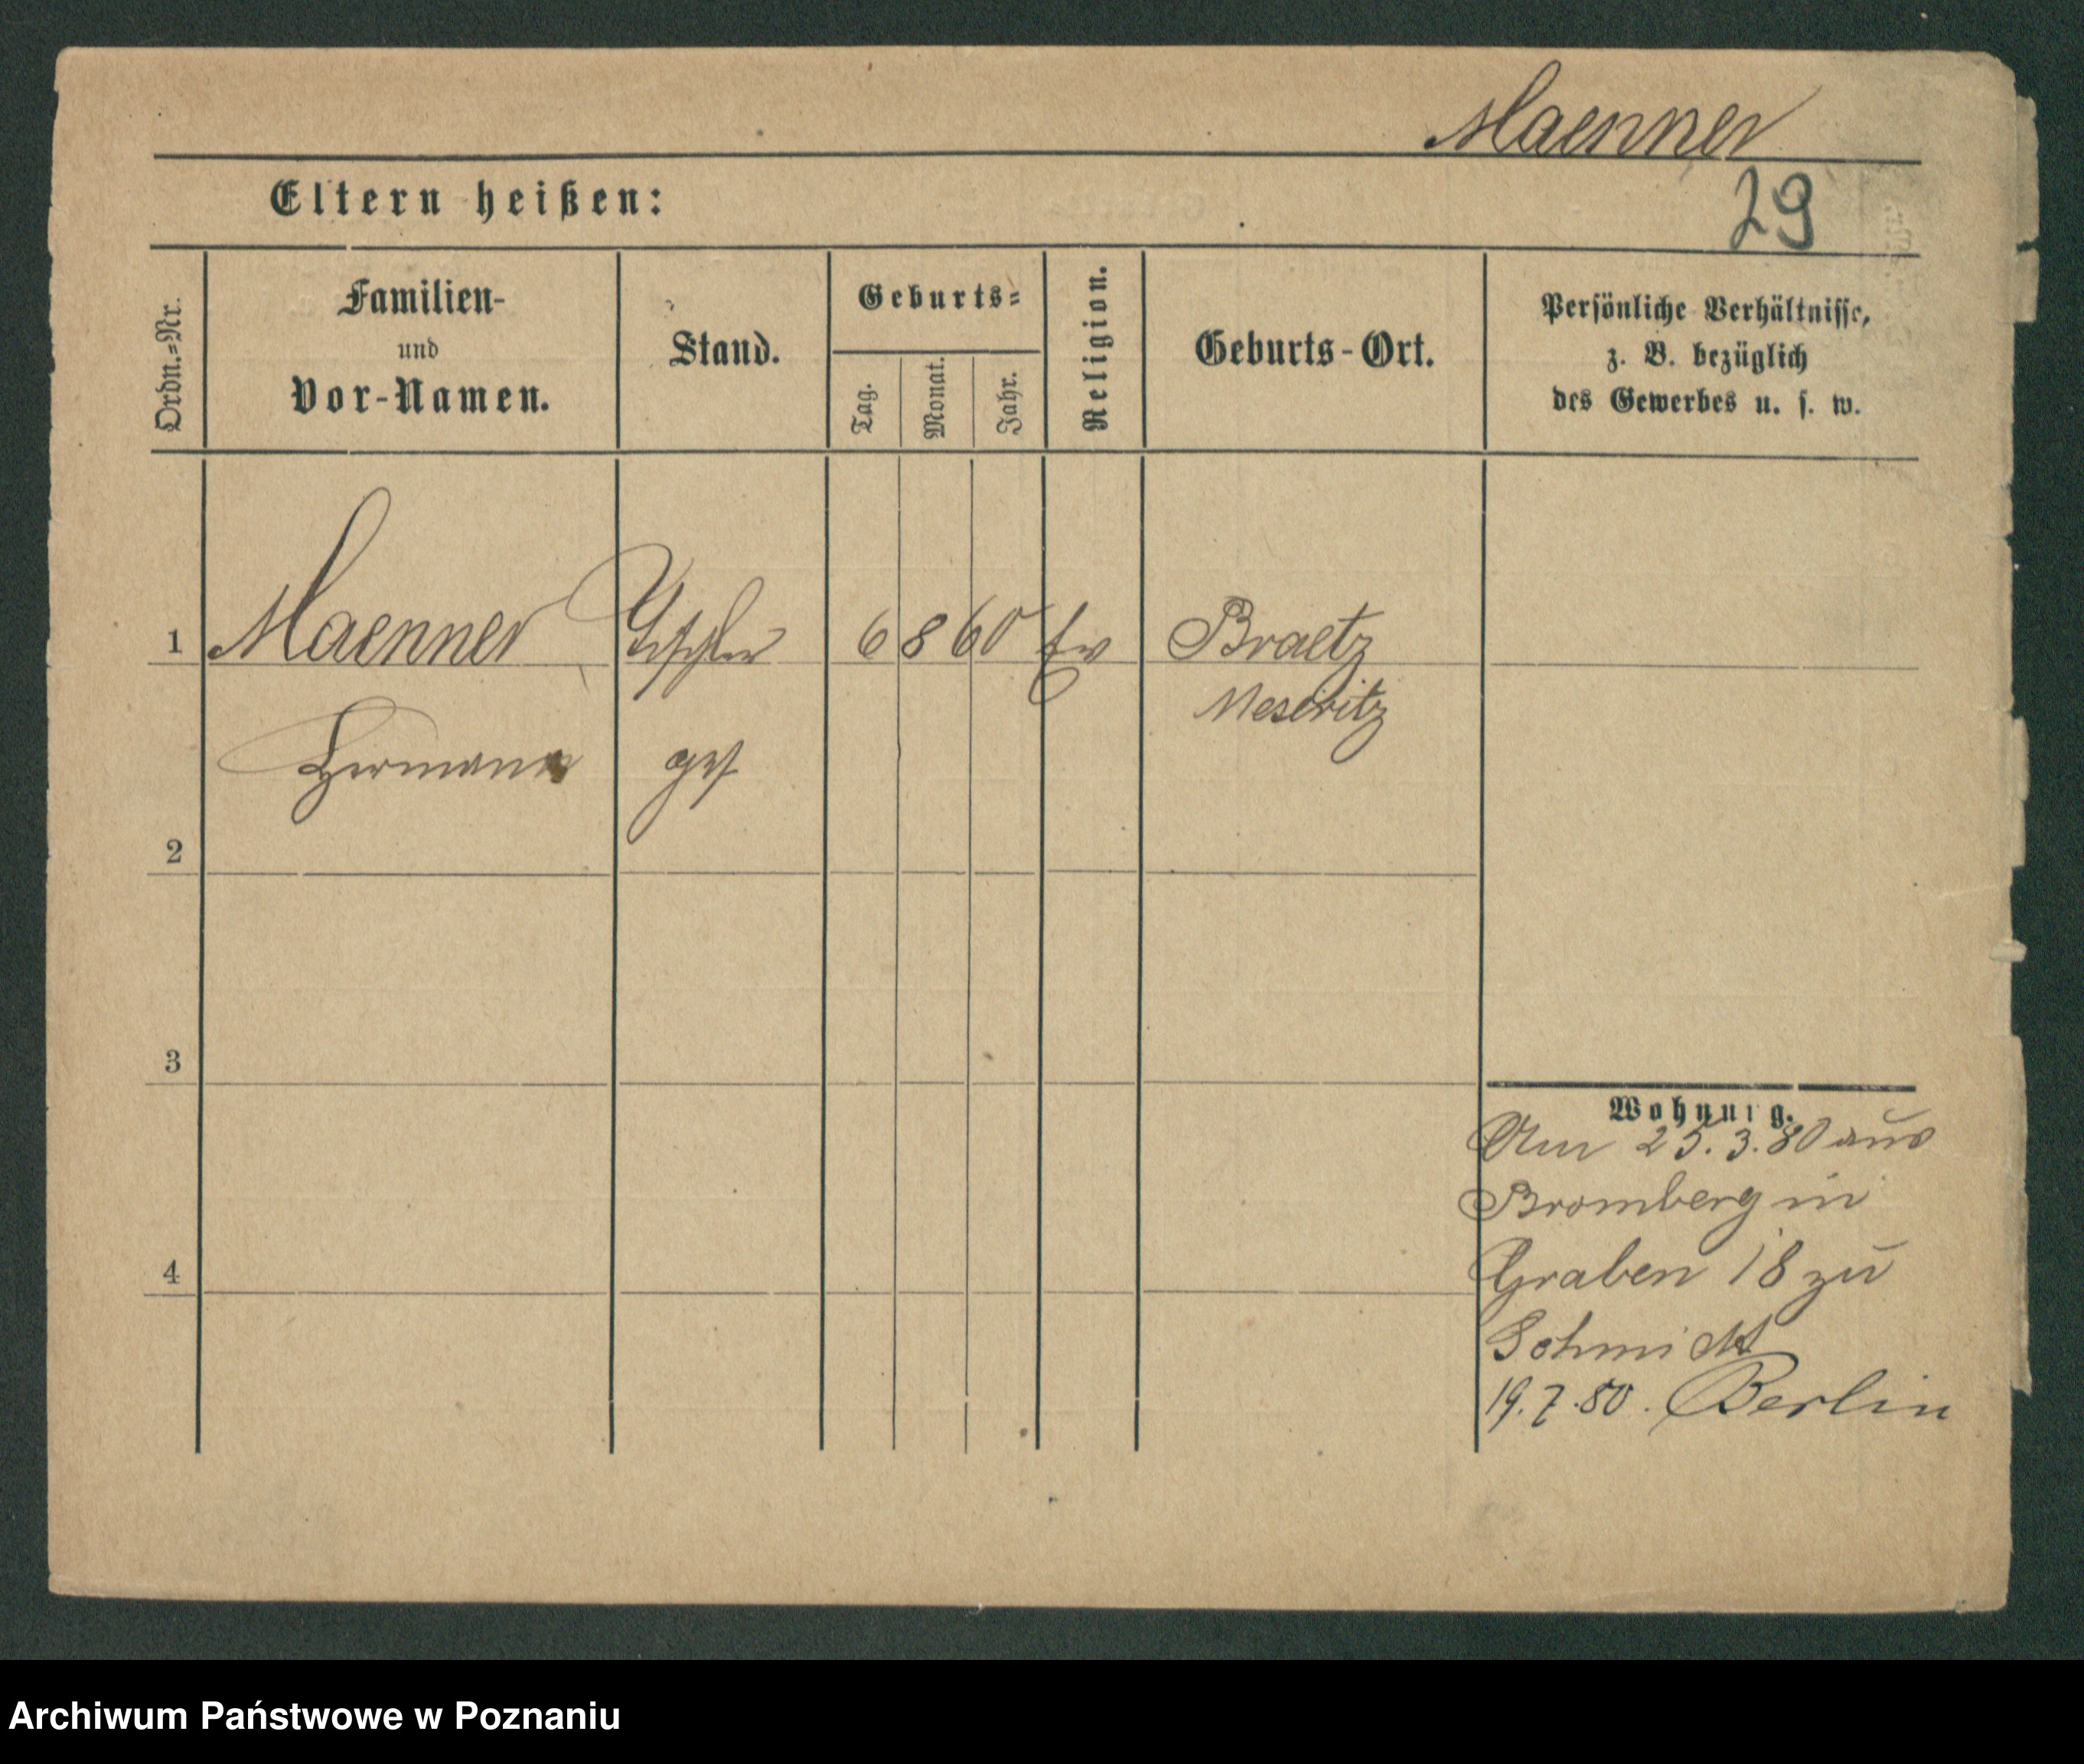 Maenner
29
Eltern heißen:
Ordn.=Nr.
Familien-
und
Vor-Namen.
Stand.
Geburts=
Tag.
Monat.
Jahr.
Religion.
Geburts-Ort.
Persönliche Verhältnisse,
z. B. bezüglich
des Gewerbes u. s. w.
1 Maenner Tischler 6 8 60 Ev Braetz
Meseritz
Hermann ges
2
3
4
Wohnung.
Am 25.3.80 aus
Bromberg in
Graben 18 zu
Schmidt
19.7.80. Berlin
Archiwum Państwowe w Poznaniu